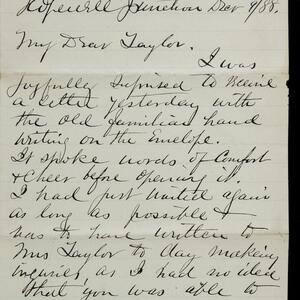 Hopewell Junction Dec 8/88.
My Dear Taylor.
I was
Joyfully Suprised to Receive
a letter yesterday with
the old familiar hand
writing on the Envelope.
It spoke words of Comfort
& Cheer before opening it.
I had just waited again
as long as possible &
was to have written to
Mrs Taylor to day making
inquiries, as I had no idea
that you was able to